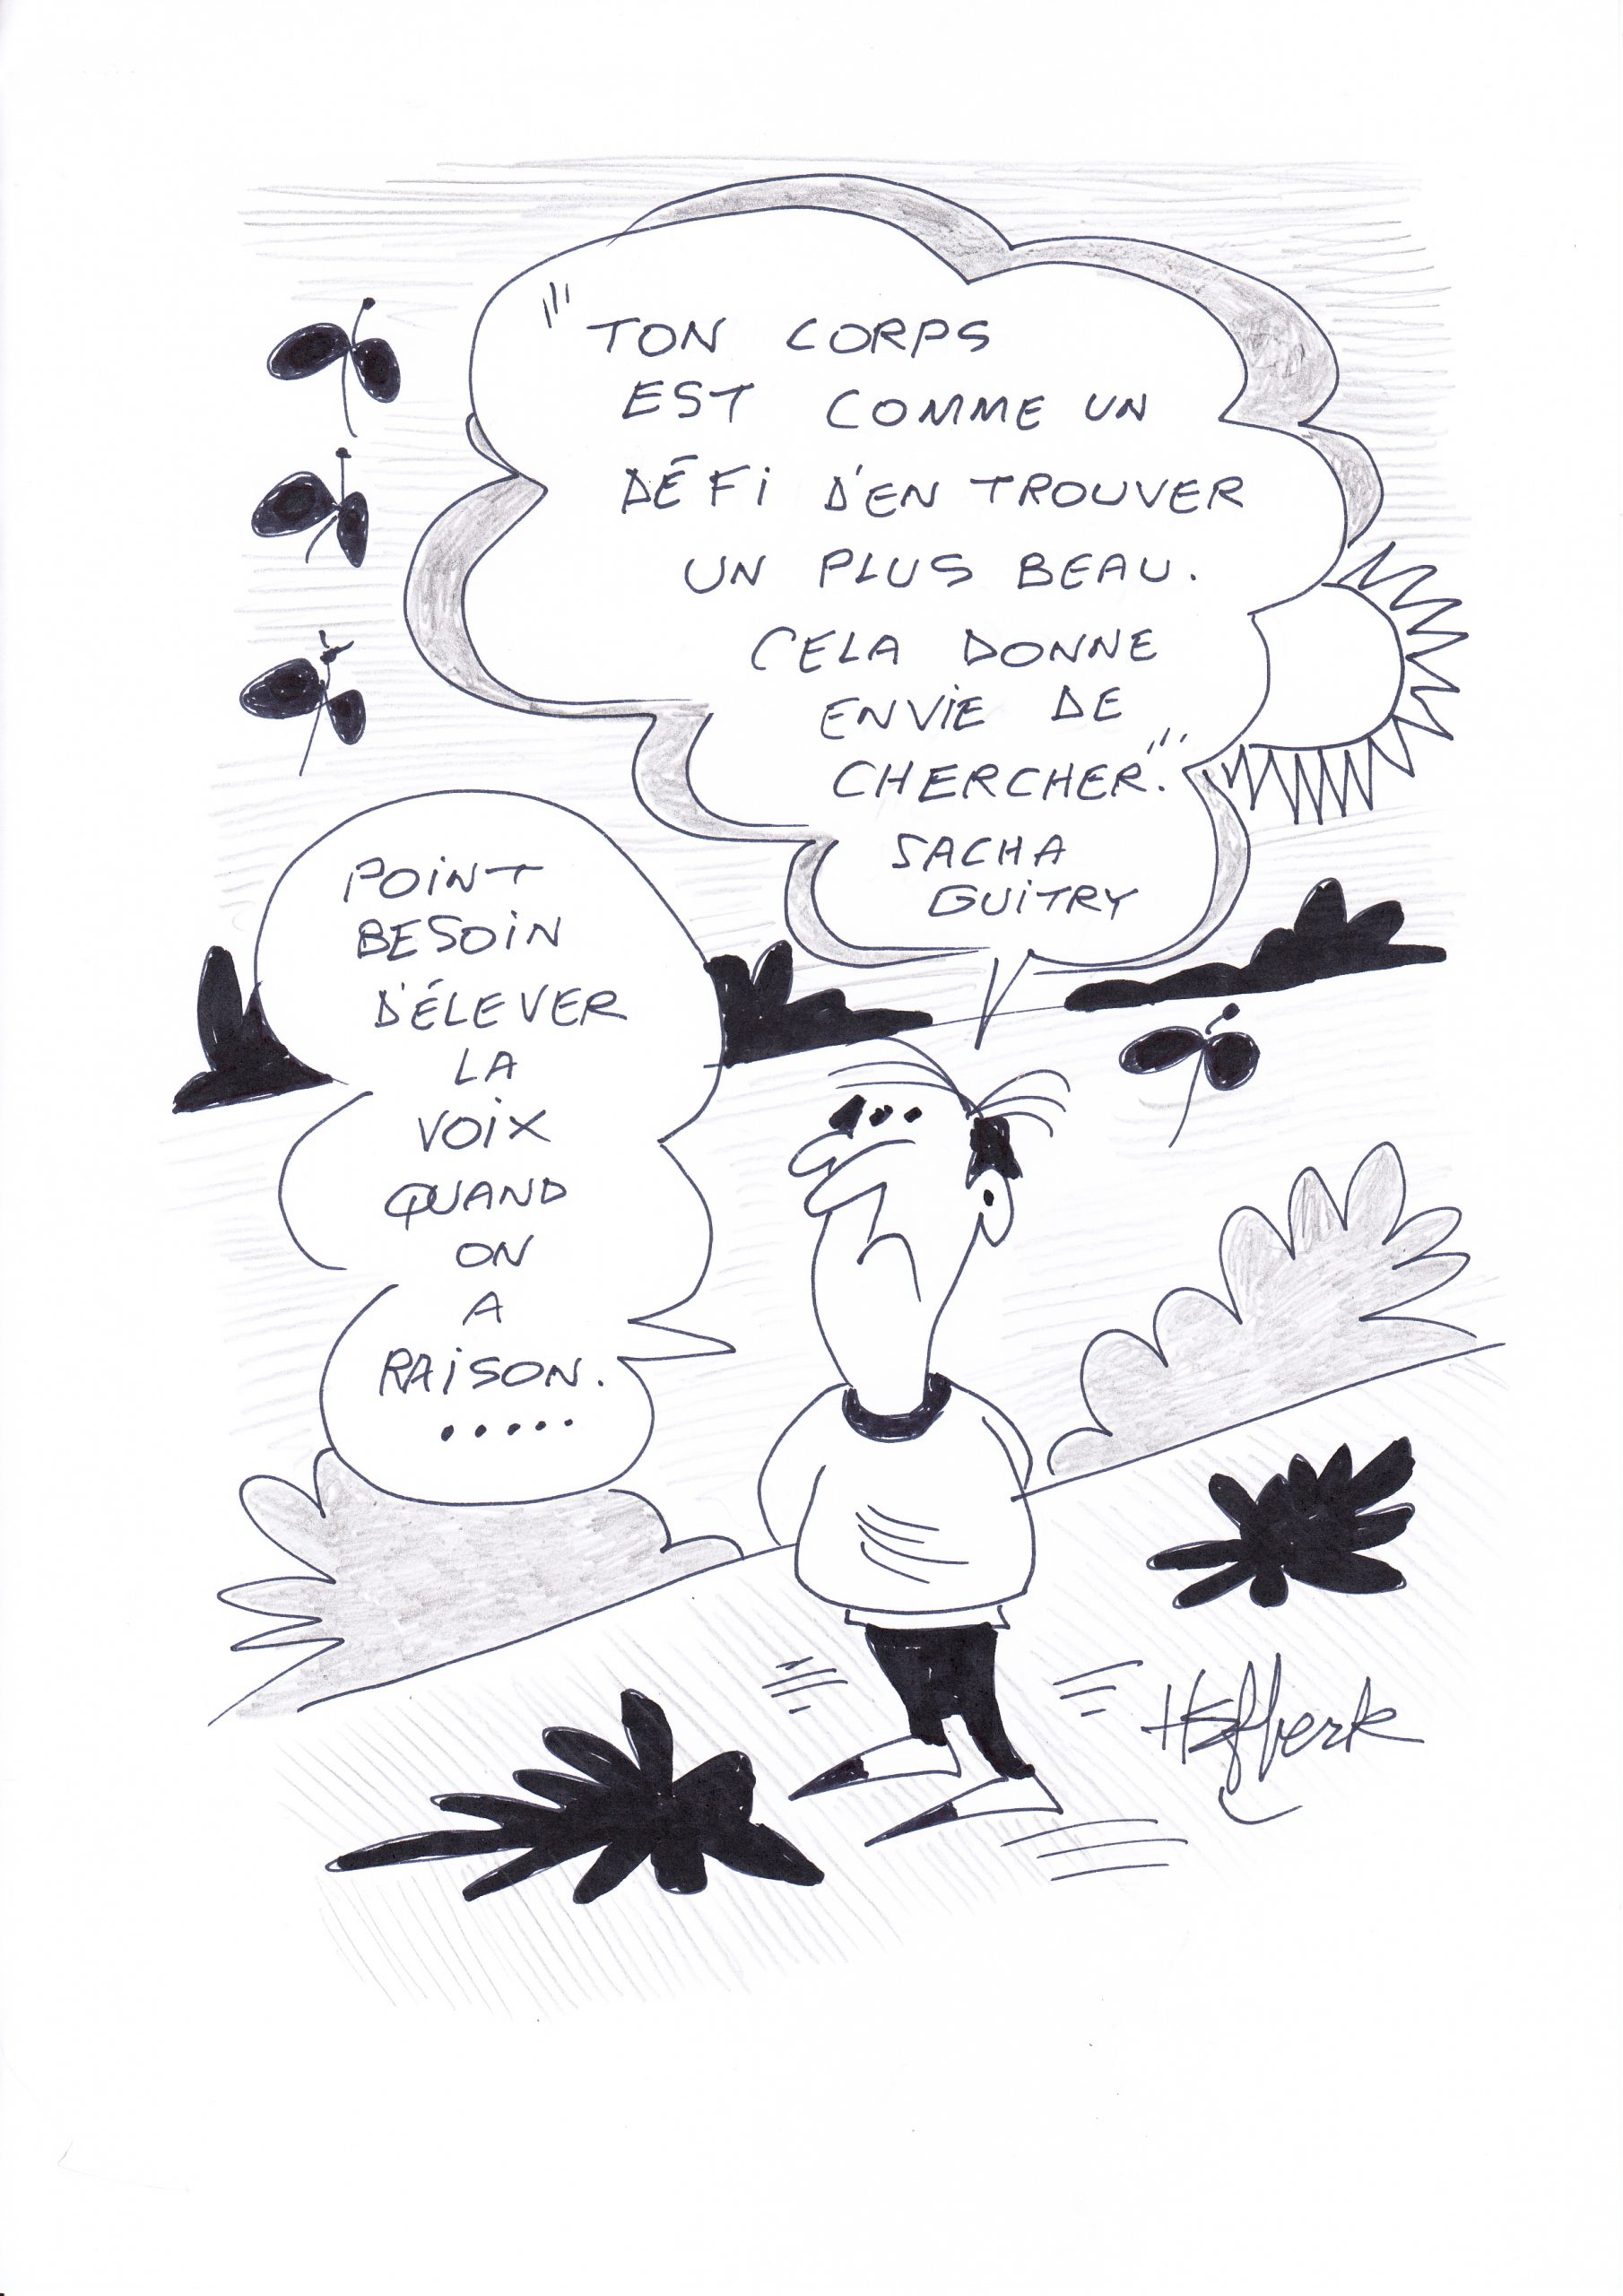 "TON CORPS
EST COMME UN
DÉFI D'EN TROUVER
UN PLUS BEAU.
CELA DONNE
ENVIE DE
CHERCHER."
SACHA
GUITRY
POINT
BESOIN
D'ÉLEVER
LA
VOIX
QUAND
ON
A
RAISON.
.....